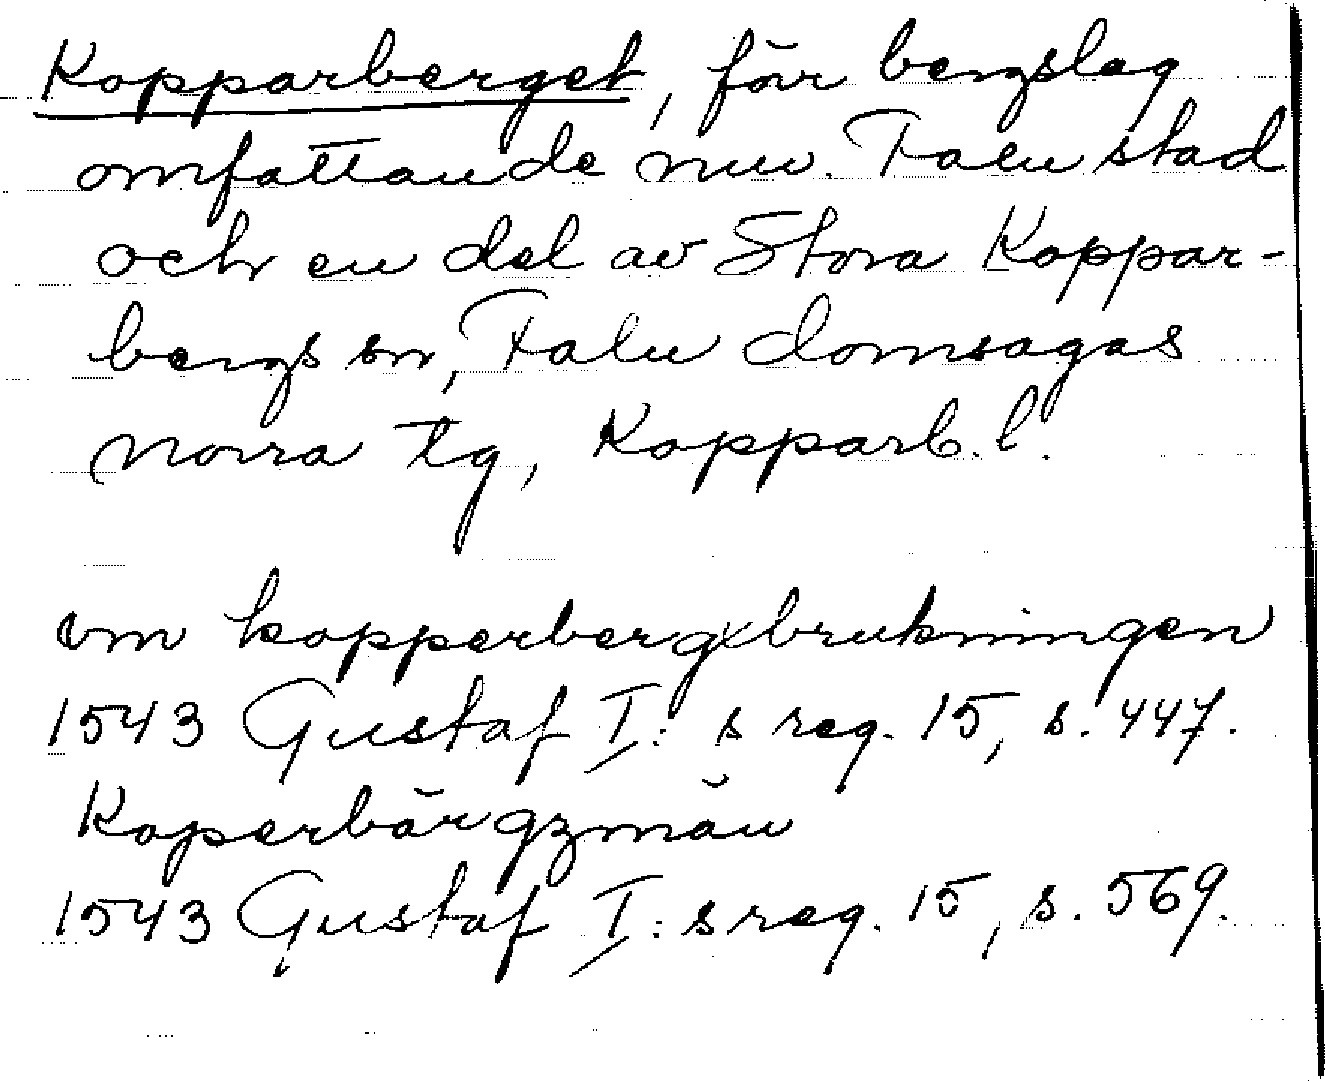 Kopparberget, förr bergslag
omfattande nuv. Falu stad
och en del av Stora Koppar-
bergs sn, Falu domsagas
norra tg, Kopparb. l.
om kopperbergxbrukningen
1543 Gustaf I:s reg. 15, s. 447.
Koperbärgzmän
1543 Gustaf I:s reg. 15, s. 569.